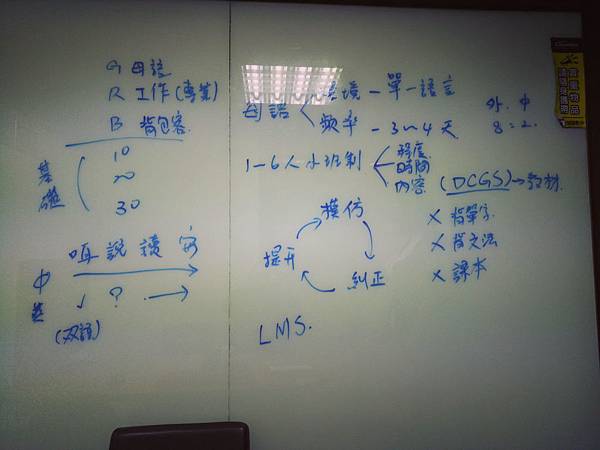 G 母語
R 工作(專業)
B 背包客
基礎
10
20
30
聽 說 讀 寫
中
✓ ? →
(双語)
母語
環境 - 單一語言
頻率 - 3~4 天
外. 中
8 = 2.
1-6人小班制
程度
時間
內容 (DCGS)→教材
模仿
糾正
提升
X 背單字
X 背文法
X 課本
LMS.